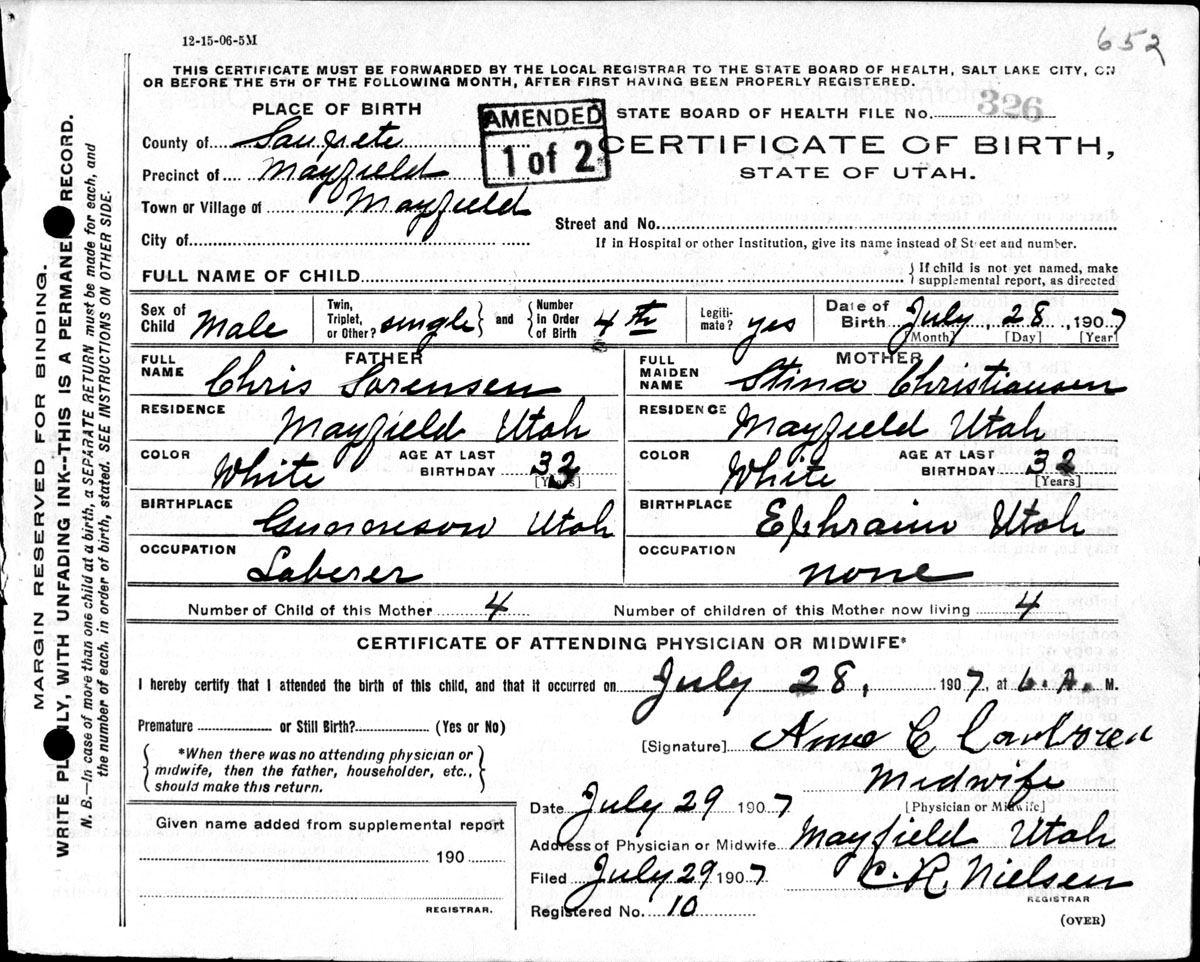 12-15-06-5M
652
THIS CERTIFICATE MUST BE FORWARDED BY THE LOCAL REGISTRAR TO THE STATE BOARD OF HEALTH, SALT LAKE CITY, ON
OR BEFORE THE 5TH OF THE FOLLOWING MONTH, AFTER FIRST HAVING BEEN PROPERLY REGISTERED.
PLACE OF BIRTH
AMENDED
1 of 2
STATE BOARD OF HEALTH FILE No. 326
County of Sanpete
CERTIFICATE OF BIRTH,
Precinct of Mayfield
STATE OF UTAH.
Town or Village of Mayfield
Street and No.
City of
If in Hospital or other Institution, give its name instead of Street and number.
FULL NAME OF CHILD
} If child is not yet named, make
supplemental report, as directed
Sex of Child Male
Twin, Triplet, or Other? single } and { Number in Order of Birth 4th
Legiti-mate? yes
Date of Birth July 28, 1907
[Month] [Day] [Year]
FATHER
FULL NAME Chris Sorensen
MOTHER
FULL MAIDEN NAME Stina Christiansen
RESIDENCE Mayfield Utah
RESIDENCE Mayfield Utah
COLOR White AGE AT LAST BIRTHDAY 32 [Years]
COLOR White AGE AT LAST BIRTHDAY 32 [Years]
BIRTHPLACE Gunnison Utah
BIRTHPLACE Ephraim Utah
OCCUPATION Laberer
OCCUPATION none
Number of Child of this Mother 4 Number of children of this Mother now living 4
CERTIFICATE OF ATTENDING PHYSICIAN OR MIDWIFE*
I hereby certify that I attended the birth of this child, and that it occurred on July 28, 1907, at 6. A. M.
Premature or Still Birth? (Yes or No)
[Signature] C
{ *When there was no attending physician or
midwife, then the father, householder, etc.,
should make this return. }
Midwife
[Physician or Midwife]
Date July 29 1907
Address of Physician or Midwife Mayfield Utah
Filed July 29 1907 C. R. Nielsen
REGISTRAR
Registered No. 10
(OVER)
Given name added from supplemental report
190
REGISTRAR.
MARGIN RESERVED FOR BINDING.
WRITE PL LY, WITH UNFADING INK--THIS IS A PERMANE RECORD.
N. B.--In case of more than one child at a birth, a SEPARATE RETURN must be made for each, and
the number of each, in order of birth, stated. SEE INSTRUCTIONS ON OTHER SIDE.